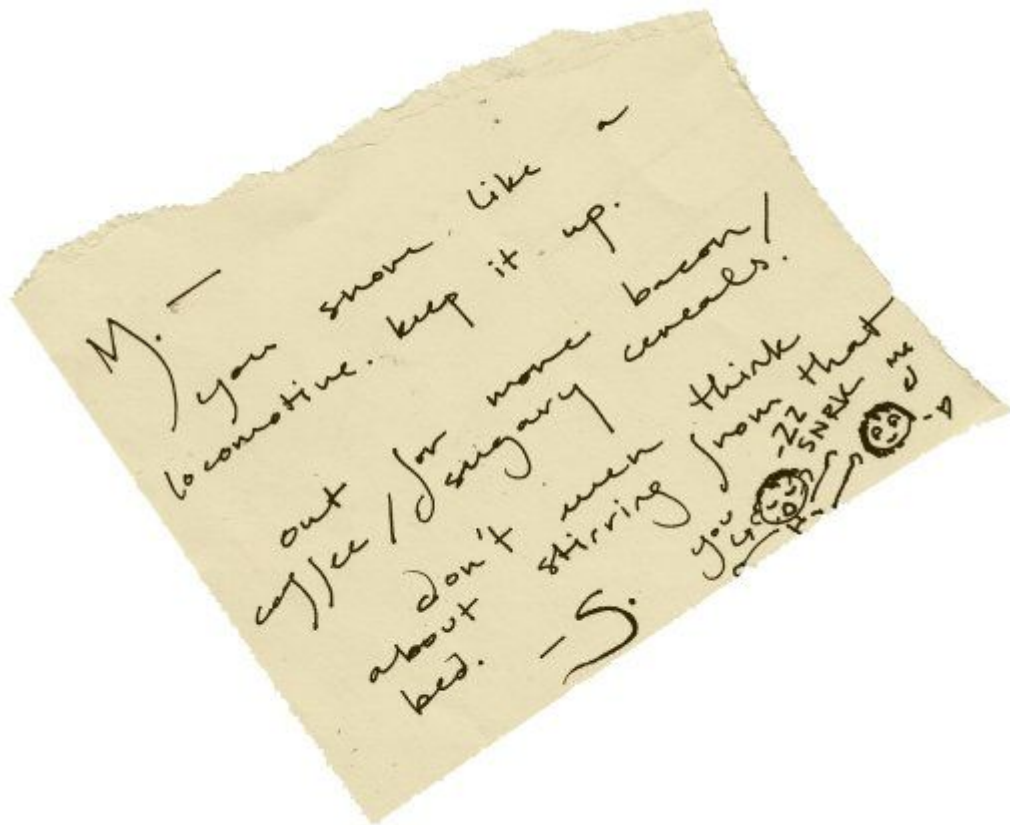 M. —
you snore like a
locomotive. keep it up.
out for more bacon/
coffee/sugary cereals.
don't even think
about stirring from that
bed. —S.
-ZZ
SNRK
you
me